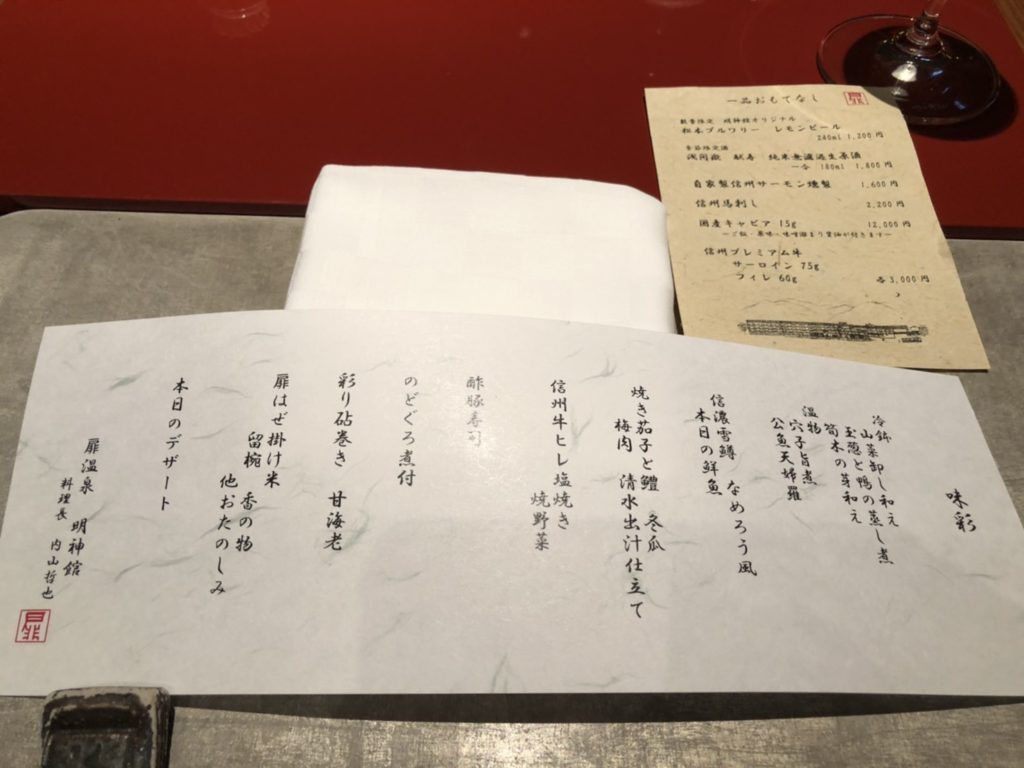 味彩
冷鉢
山菜卸し和え
玉葱と鴨の蒸し煮
筍木の芽和え
温物
穴子旨煮
公魚天婦羅
信濃雪鱒 なめろう風
本日の鮮魚
焼き茄子と鱧 冬瓜
梅肉 清水出汁仕立て
信州牛ヒレ塩焼き
焼野菜
酢豚寿司
のどぐろ煮付
彩り砧巻き 甘海老
扉はぜ掛け米
留椀 香の物
他おたのしみ
本日のデザート
扉温泉 明神館
料理長 内山哲也
扉
一品おもてなし
扉
数量限定 明神館オリジナル
松本ブルワリー レモンビール
240ml 1,200円
季節限定酒
浅間嶽 献寿 純米無濾過生原酒
一合 180ml 1,800円
自家製信州サーモン燻製 1,600円
信州馬刺し 2,200円
国産キャビア 15g 12,000円
信州プレミアム牛
サーロイン 75g
フィレ 60g 各3,000円